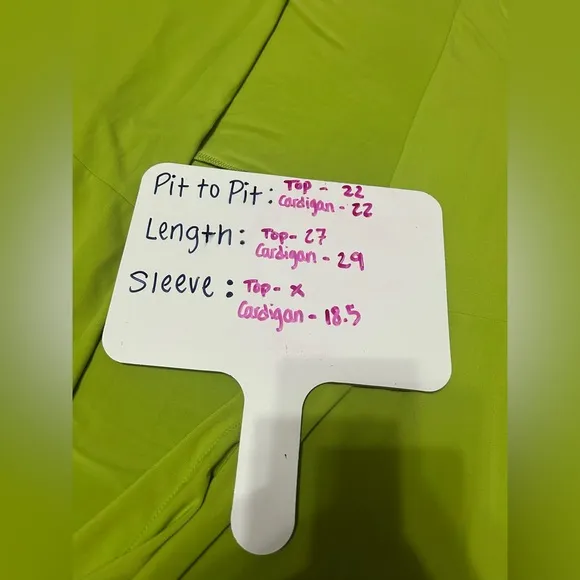 Pit to Pit: Top - 22
Cardigan - 22
Length: Top- 27
Cardigan - 29
Sleeve: Top- x
Cardigan - 18.5